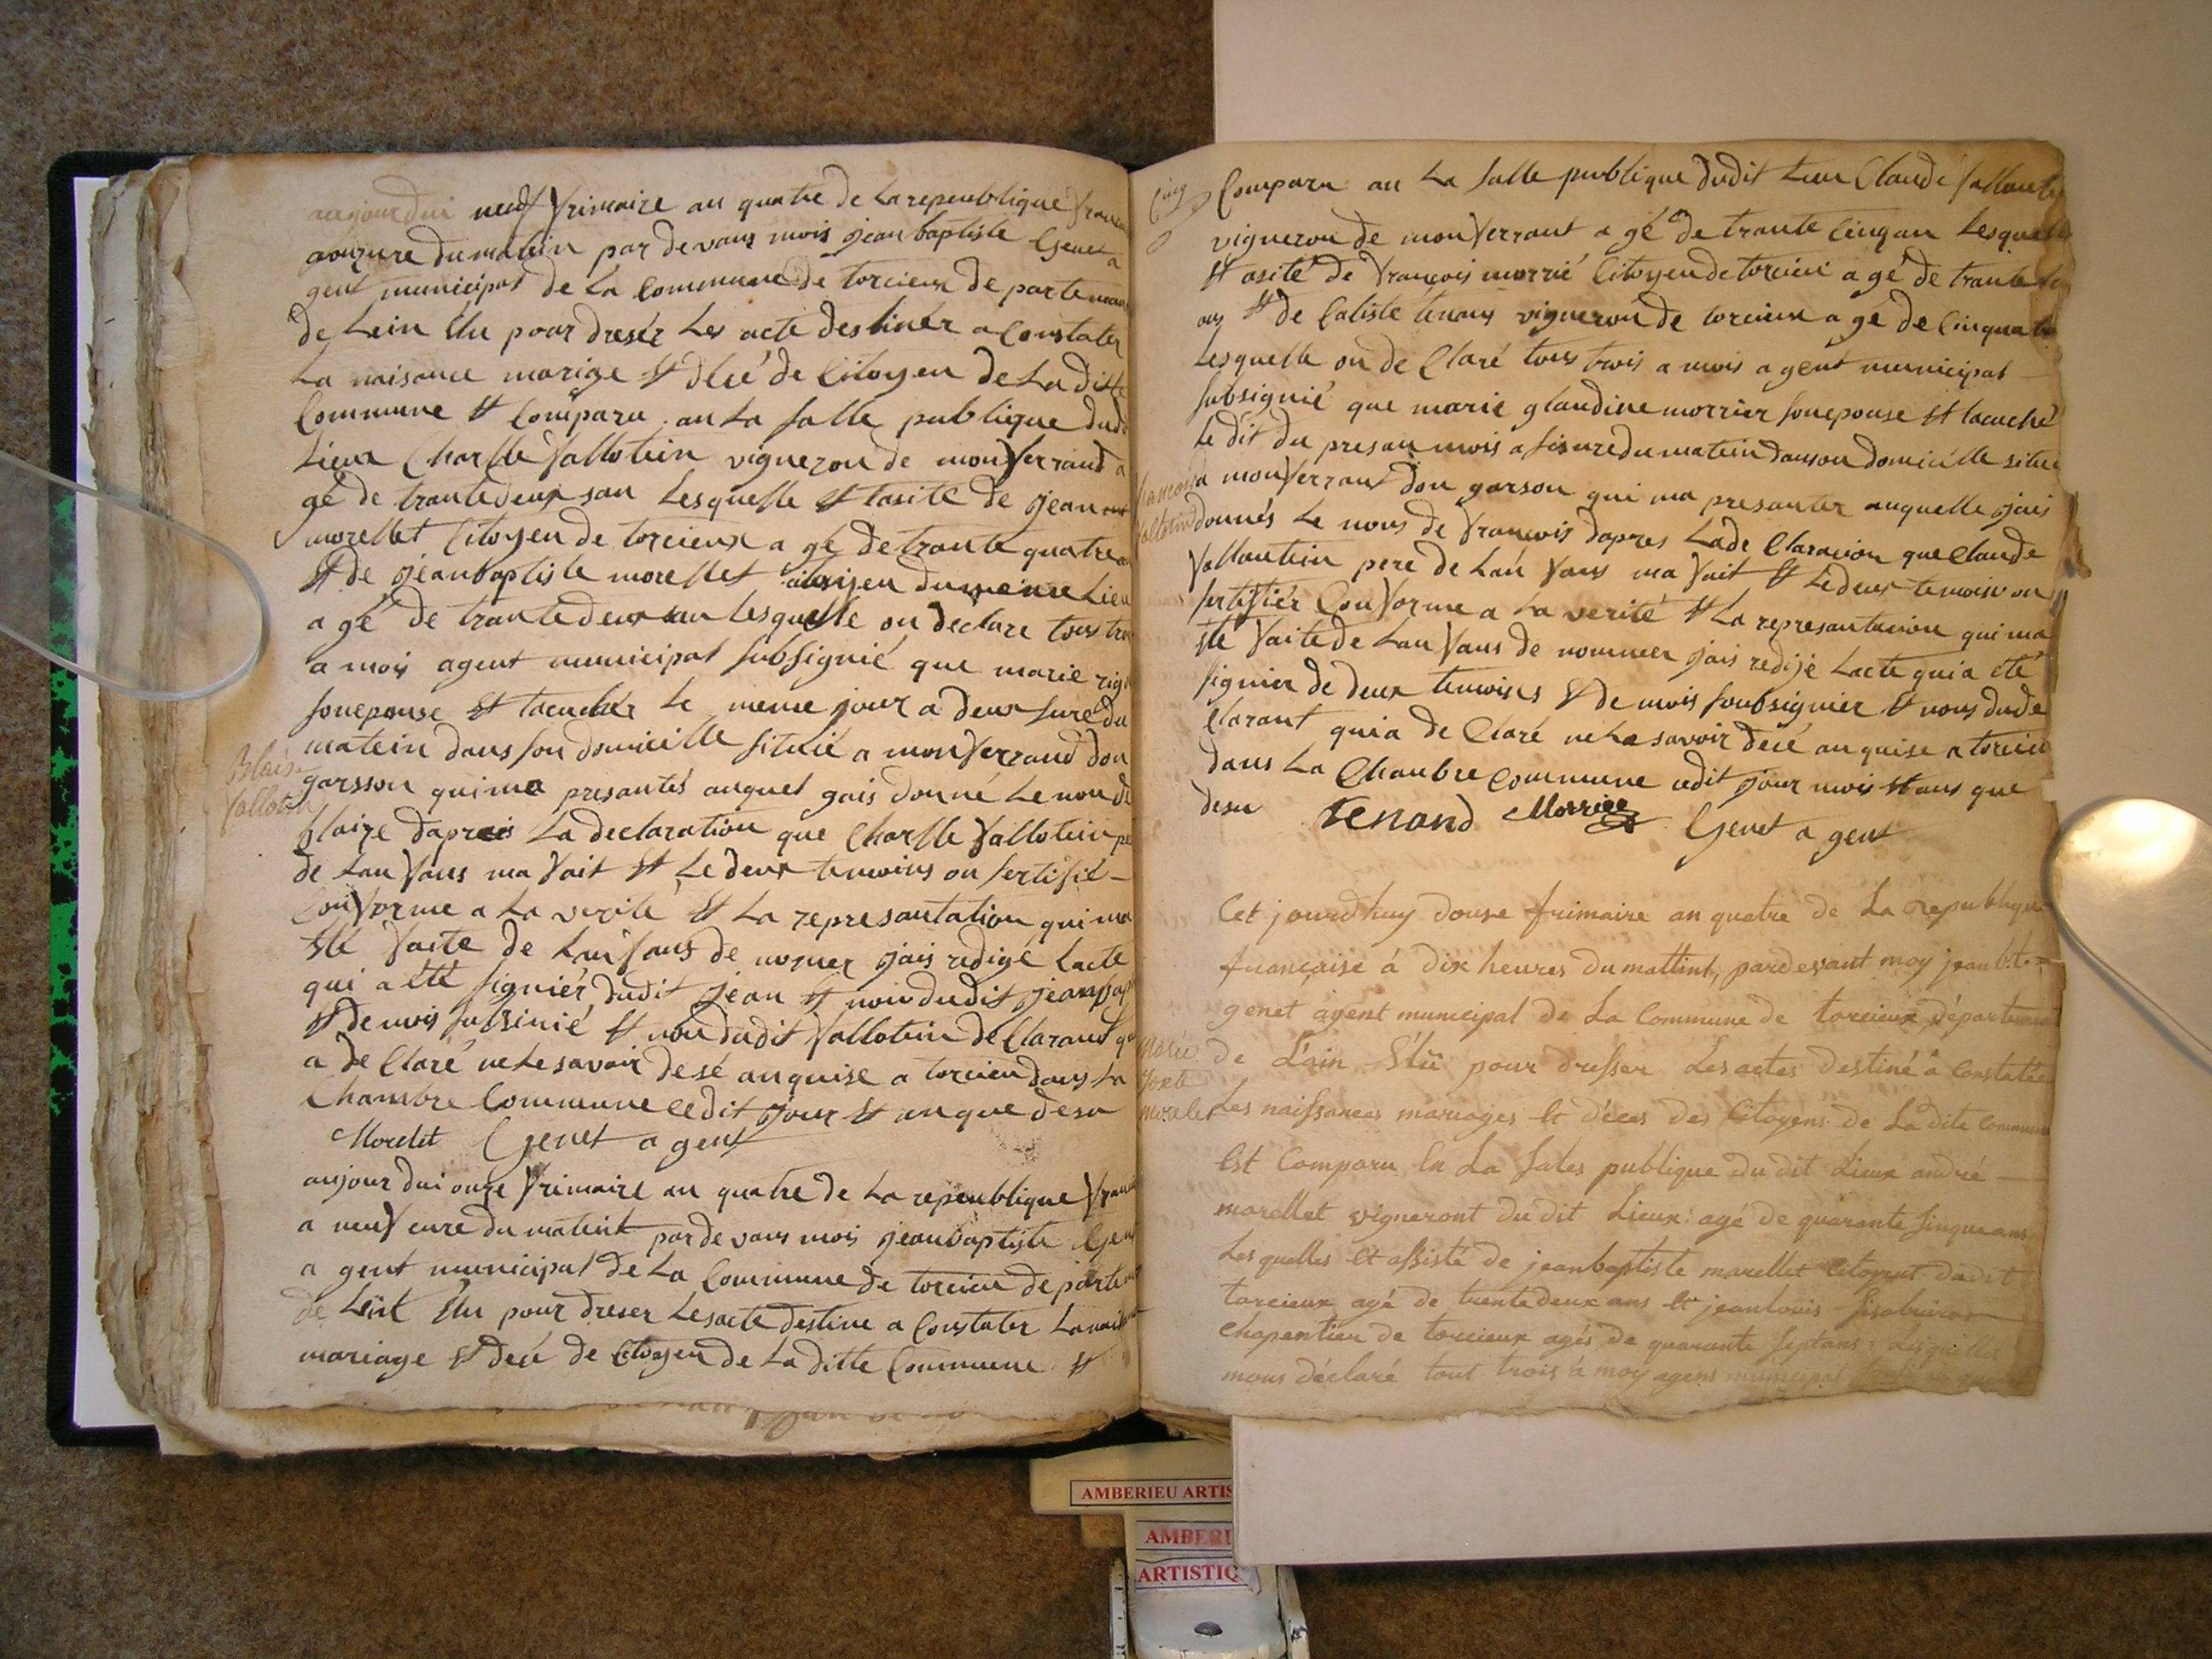 aujourdui neuf frimaire an quatre de La republique
aonzure du matein par devans mois jean baptiste Genet a
gent municipal de La Commune de torcieux de partemen
de Lein Elu pour dresér Les acte destinér a Constater
La naisance marige et décé de Citoyen de La ditte
Commune et Comparu an La salle publique dudi
Lieux Charlle fallotein vigneron de monferrand a
gé de trante deux san Lesquelle et tasite de jean
morellet Citoyen de torcieux a gé de trante quatre
et de jean baptiste morellet citoijen du meme Lieu
a gé de trante deux an lesquelle on declare tous tro
a mois agent municipal subsignié que marie
son epouse et tacuchér Le meme jour a deux sure du
matein dans son domicille situié a monferrand don
Blaise
fallotein
garsson qui ma presantés auquel gais donné Le nom de
blaize daprais La declaration que Charlle fallotein pe
de Lan fans ma fait et Le deux temoins on sertifié -
Conforme a La verite et La represantation qui ma
eté faite de Lan fans de nomer jais redigé Lacte
qui a eté signiér dudit jean et non dudit jeanbap
et de mois subsinié et non dudit fallotein de Clarant qui
a de Claré ne Le savoir desé anquise a torcieu dans La
Chambre Commune cedit jour et an que desu
Morelet Genet a gent
aujour dui onze frimaire an quatre de La republique
a neuf eure du mateint par de vans mois jean baptiste Gene
a gent municipal de La Commune de torcieu departe
de Leint Elu pour dreser Les acte destine a Constater La nais
mariage et décé de Citoyen de La ditte Commune et
Cinq
Comparu an La salle publique dudit Lieu Claude fallantin
vigneron de monferrant a gé de trante cinq an Lesquelle
et asité de françois morrié Citoyen de torcieu a gé de trante
ans et de Caliste tenans vigneron de torcieux a gé de Cinquante
Lesquelle on de Claré tous trois a mois agent municipal
subsignié que marie glaudine morrier son epouse et tacuché
Le dit du presan mois a sisure du matein dans son domicille situe
françois
fallotein
a monferrant don garson qui ma presanter auquelle jais
donnés Le nom de françois dapres La de Claracion que Claude
fallantin pere de Lan fans ma fait et Le deux temoin on
sertifiér Conforme a La verité et La represantacion qui ma
eté faite de Lan fans de nommer jais redijé Lacte qui a été
signier de deux temoises et de mois soubsignier et nous dude
Clarant qui a de Claré ne La savoir decé anquise a torcieu
dans La Chanbre commune cedit jour mois et ans que
desu tenand Morrier Genet a gent
Cet jourdhuy douse frimaire an quatre de La republique
française à dix heures du mattint, pardevant moy jean bte
genet agent municipal de La Commune de torcieux départemen
Marie
morelet
de L'ain Elü pour dresser Les actes destiné à Constatée
Les naissances mariages et déces des Citoyens de La dite commune
Est Comparu En La Sales publique du dit Lieux andré
morellet vigneront du dit Lieux agé de quarante sinque ans
Les quelles Et assisté de jean baptiste morellet Citoyent dudit
torcieux agé de trente deux ans et jean louis
Chapentier de torcieux agés de quarante septans Les quelles
mons déclaré tout trois à moy agens municipal
AMBERIEU ARTIS
AMBERI
ARTISTIQ